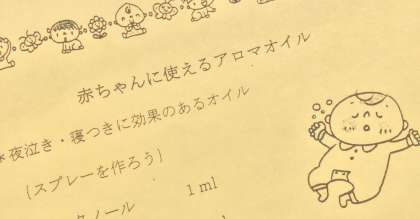 赤ちゃんに使えるアロマオイル
*夜泣き・寝つきに効果のあるオイル
(スプレーを作ろう)
タノール 1ml